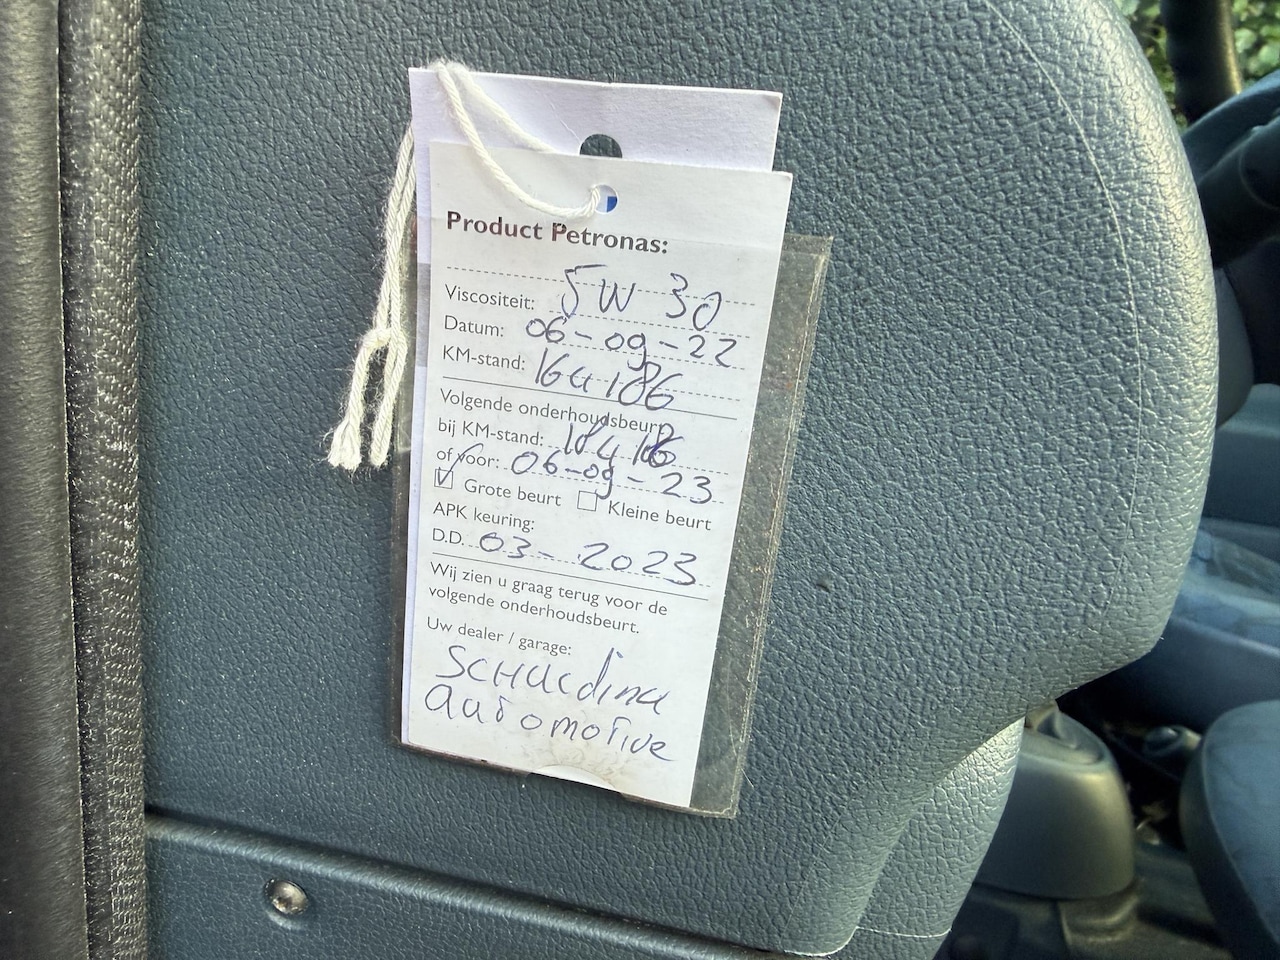 Product Petronas:
Viscositeit: 5W 30
Datum: 06-09-22
KM-stand: 164186
Volgende onderhoudsbeurt
bij KM-stand:
of voor: 06-09-23
Grote beurt Kleine beurt
APK keuring:
D.D. 03-2023
Wij zien u graag terug voor de
volgende onderhoudsbeurt.
Uw dealer / garage:
automotive